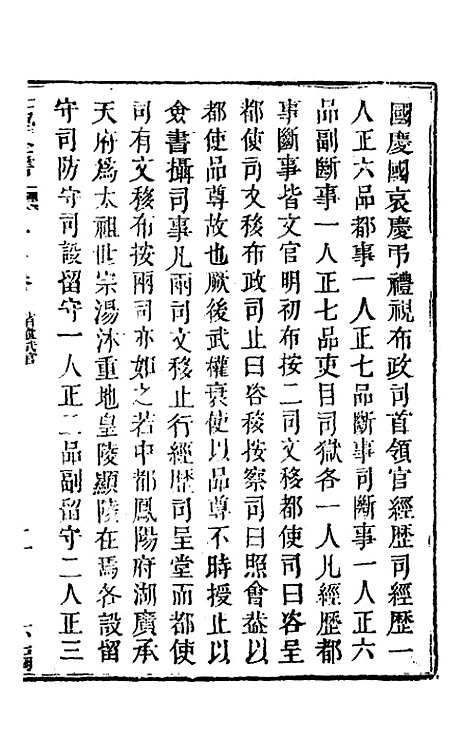 國慶國哀慶弔禮視布政司首領官經歷司經歷一
人正六品都事一人正七品斷事司斷事一人正六
品副斷事一人正七品吏目司獄各一人凡經歷都
事斷事皆文官明初布按二司文移都使司曰咨呈
都使司文移布政司止曰咨移按察司曰照會葢以
都使品尊故也厥後武權衰使以品尊不時授止以
僉書攝司事凡兩司文移止行經歷司呈堂而都使
司有文移布按兩司亦如之若中都鳳陽府湖廣承
天府爲太祖世宗湯沐重地皇陵顯陵在焉各設留
守司防守司設留守一人正二品副留守二人正三